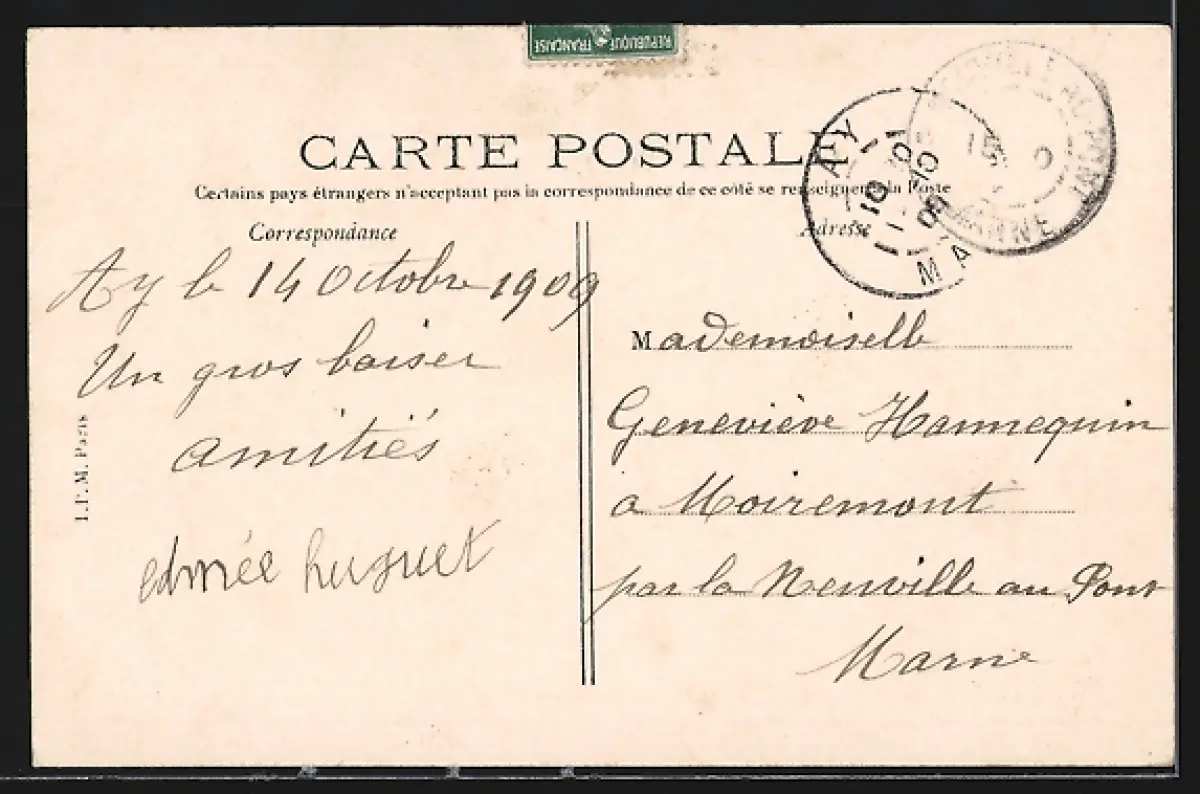 REPUBLIQUE FRANÇAISE
CARTE POSTALE
Certains pays étrangers n'acceptant pas la correspondance de ce côté se renseigner à la Poste
Correspondance
Ay le 14 Octobre 1909
Un gros baiser
amitiés
edmée huguet
I.P.M. Paris
Adresse
AY
MA
AU-PONT
MARNE
Mademoiselle
Geneviève Hannequin
a Moiremont
par la Neuville au Pont
Marne